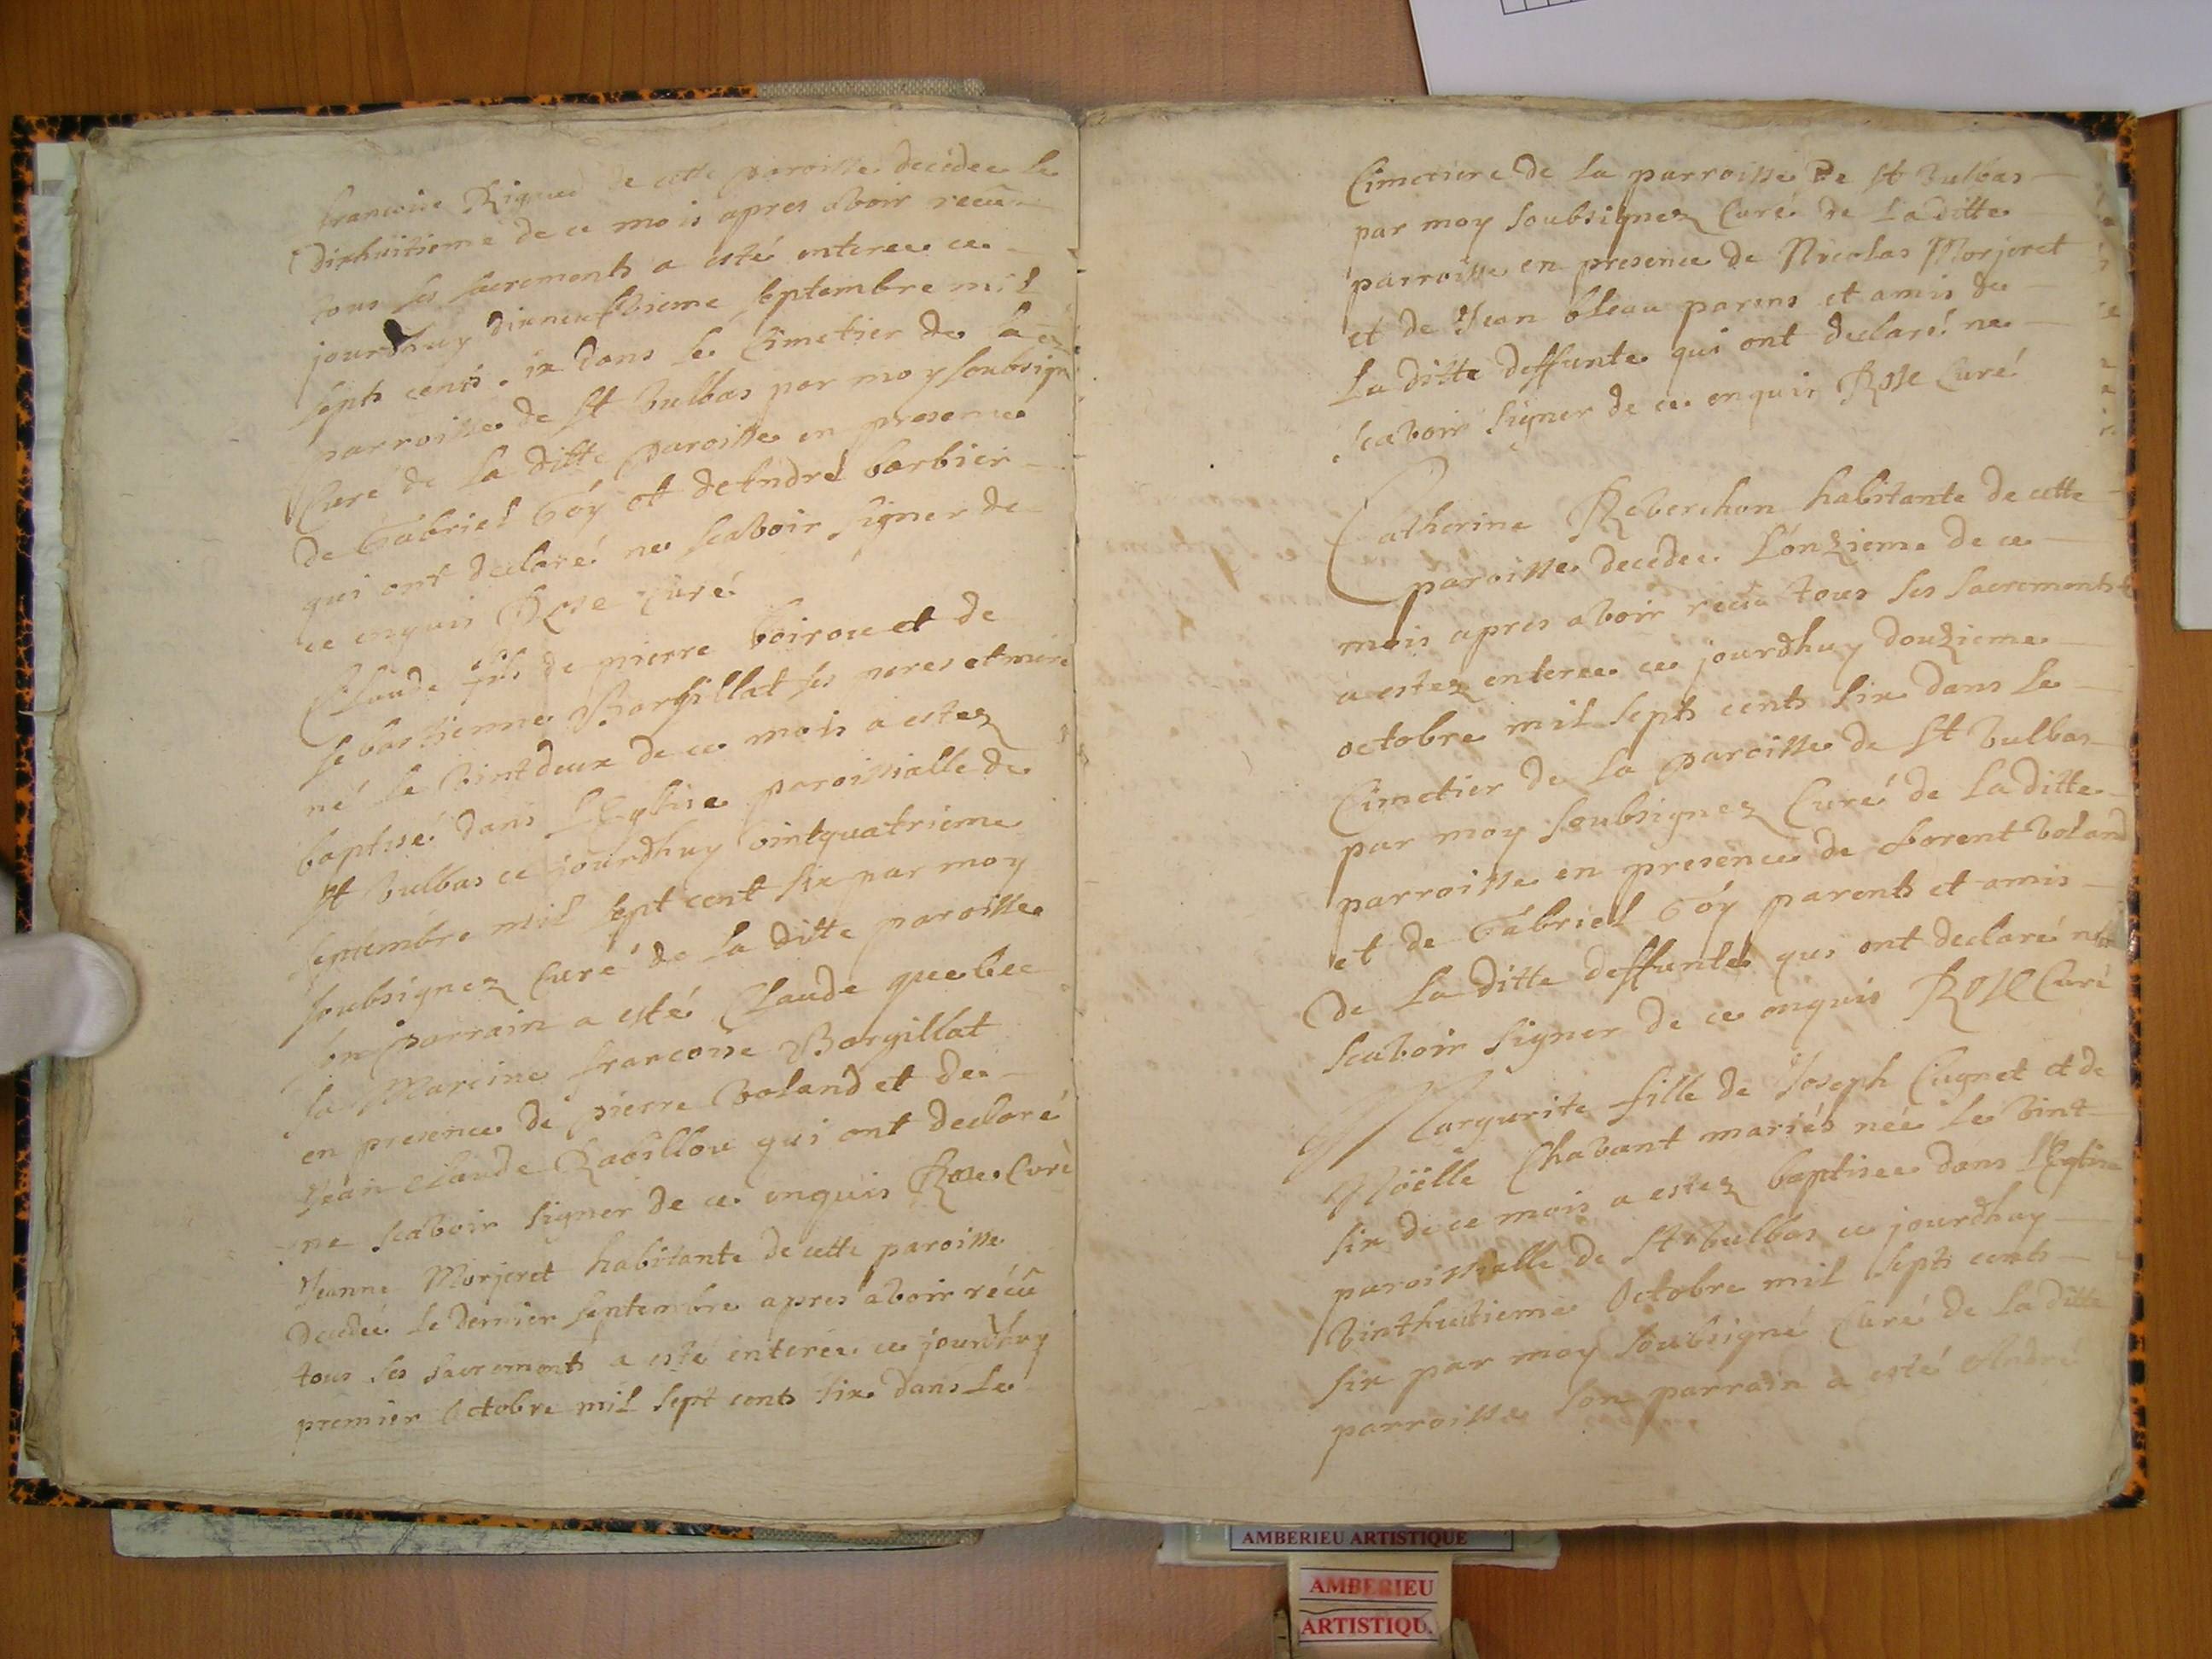 francoise Rignied de cette paroisse decedee le
dixhuitieme de ce mois apres avoir recu
tous ses sacrements a esté enteree ce
jourdhuy dixneufvieme septembre mil
septs cents six dans le Cimetier de la
parroisse de St Vulbas par moy soubsign
Curé de la ditte paroisse en presence
de Gabriel Goy et de André barbier
qui ont declaré ne scavoir signer de
ce enquis Rose curé
Claude fils de pierre boiron et de
Sebastienne Borgillat ses peres et mere
né le vintdeux de ce mois a estez
baptisé dans l'Eglise paroissialle de
St Vulbas ce jourdhuy vintquatrieme
septembre mil sept cent six par moy
soubsignez Curé de la ditte paroisse
son parrain a esté Claude quebec
sa Mareine francoise Borgillat
en presence de pierre Voland et de
Jean Claude Rabillou qui ont declaré
ne scavoir signer de ce enquis Rose Curé
Jeanne Morjeret habitante de cette paroisse
decedée le dernier septembre apres avoir récu
tous ses sacrements a esté enterée ce jourdhuy
premier octobre mil sept cents six dans le
Cimetiere de la parroisse De St Vulbas
par moy soubsignez Curé de la ditte
parroisse en presence de Nicolas Morjeret
et de Jean bleau parens et amis de
la ditte deffunte qui ont declaré ne
scavoir signer de ce enquis Rose Curé
Catherine Reberchon habitante de cette
paroisse decedee l'onzieme de ce
mois apres avoir recu tous ses sacrements
a estez enteree ce jourdhuy douzieme
octobre mil septs cents six dans le
Cimetier de la paroisse de St Vulbas
par moy soubsignez Curé de la ditte
parroisse en presence de florent Voland
et de Gabriel Goy parents et amis
de la ditte deffunte qui ont declaré ne
scavoir signer de ce enquis Rose Curé
Margurite fille de Joseph Cugnet et de
Noëlle Chavant mariés née le vint
six de ce mois a estez baptisee dans l'Eglise
paroissialle de St Vulbas ce jourdhuy
vinthuitieme Octobre mil septs cents
six par moy soubsigné Curé de la ditte
parroisse son parrain a esté André
AMBERIEU ARTISTIQUE
AMBERIEU
ARTISTIQU